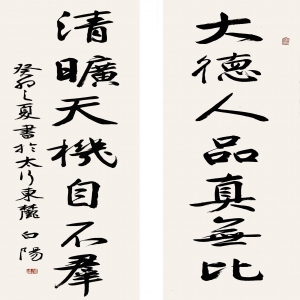 大德人品真無比
清曠天機自不羣
癸卯之夏書於太行東麓白陽